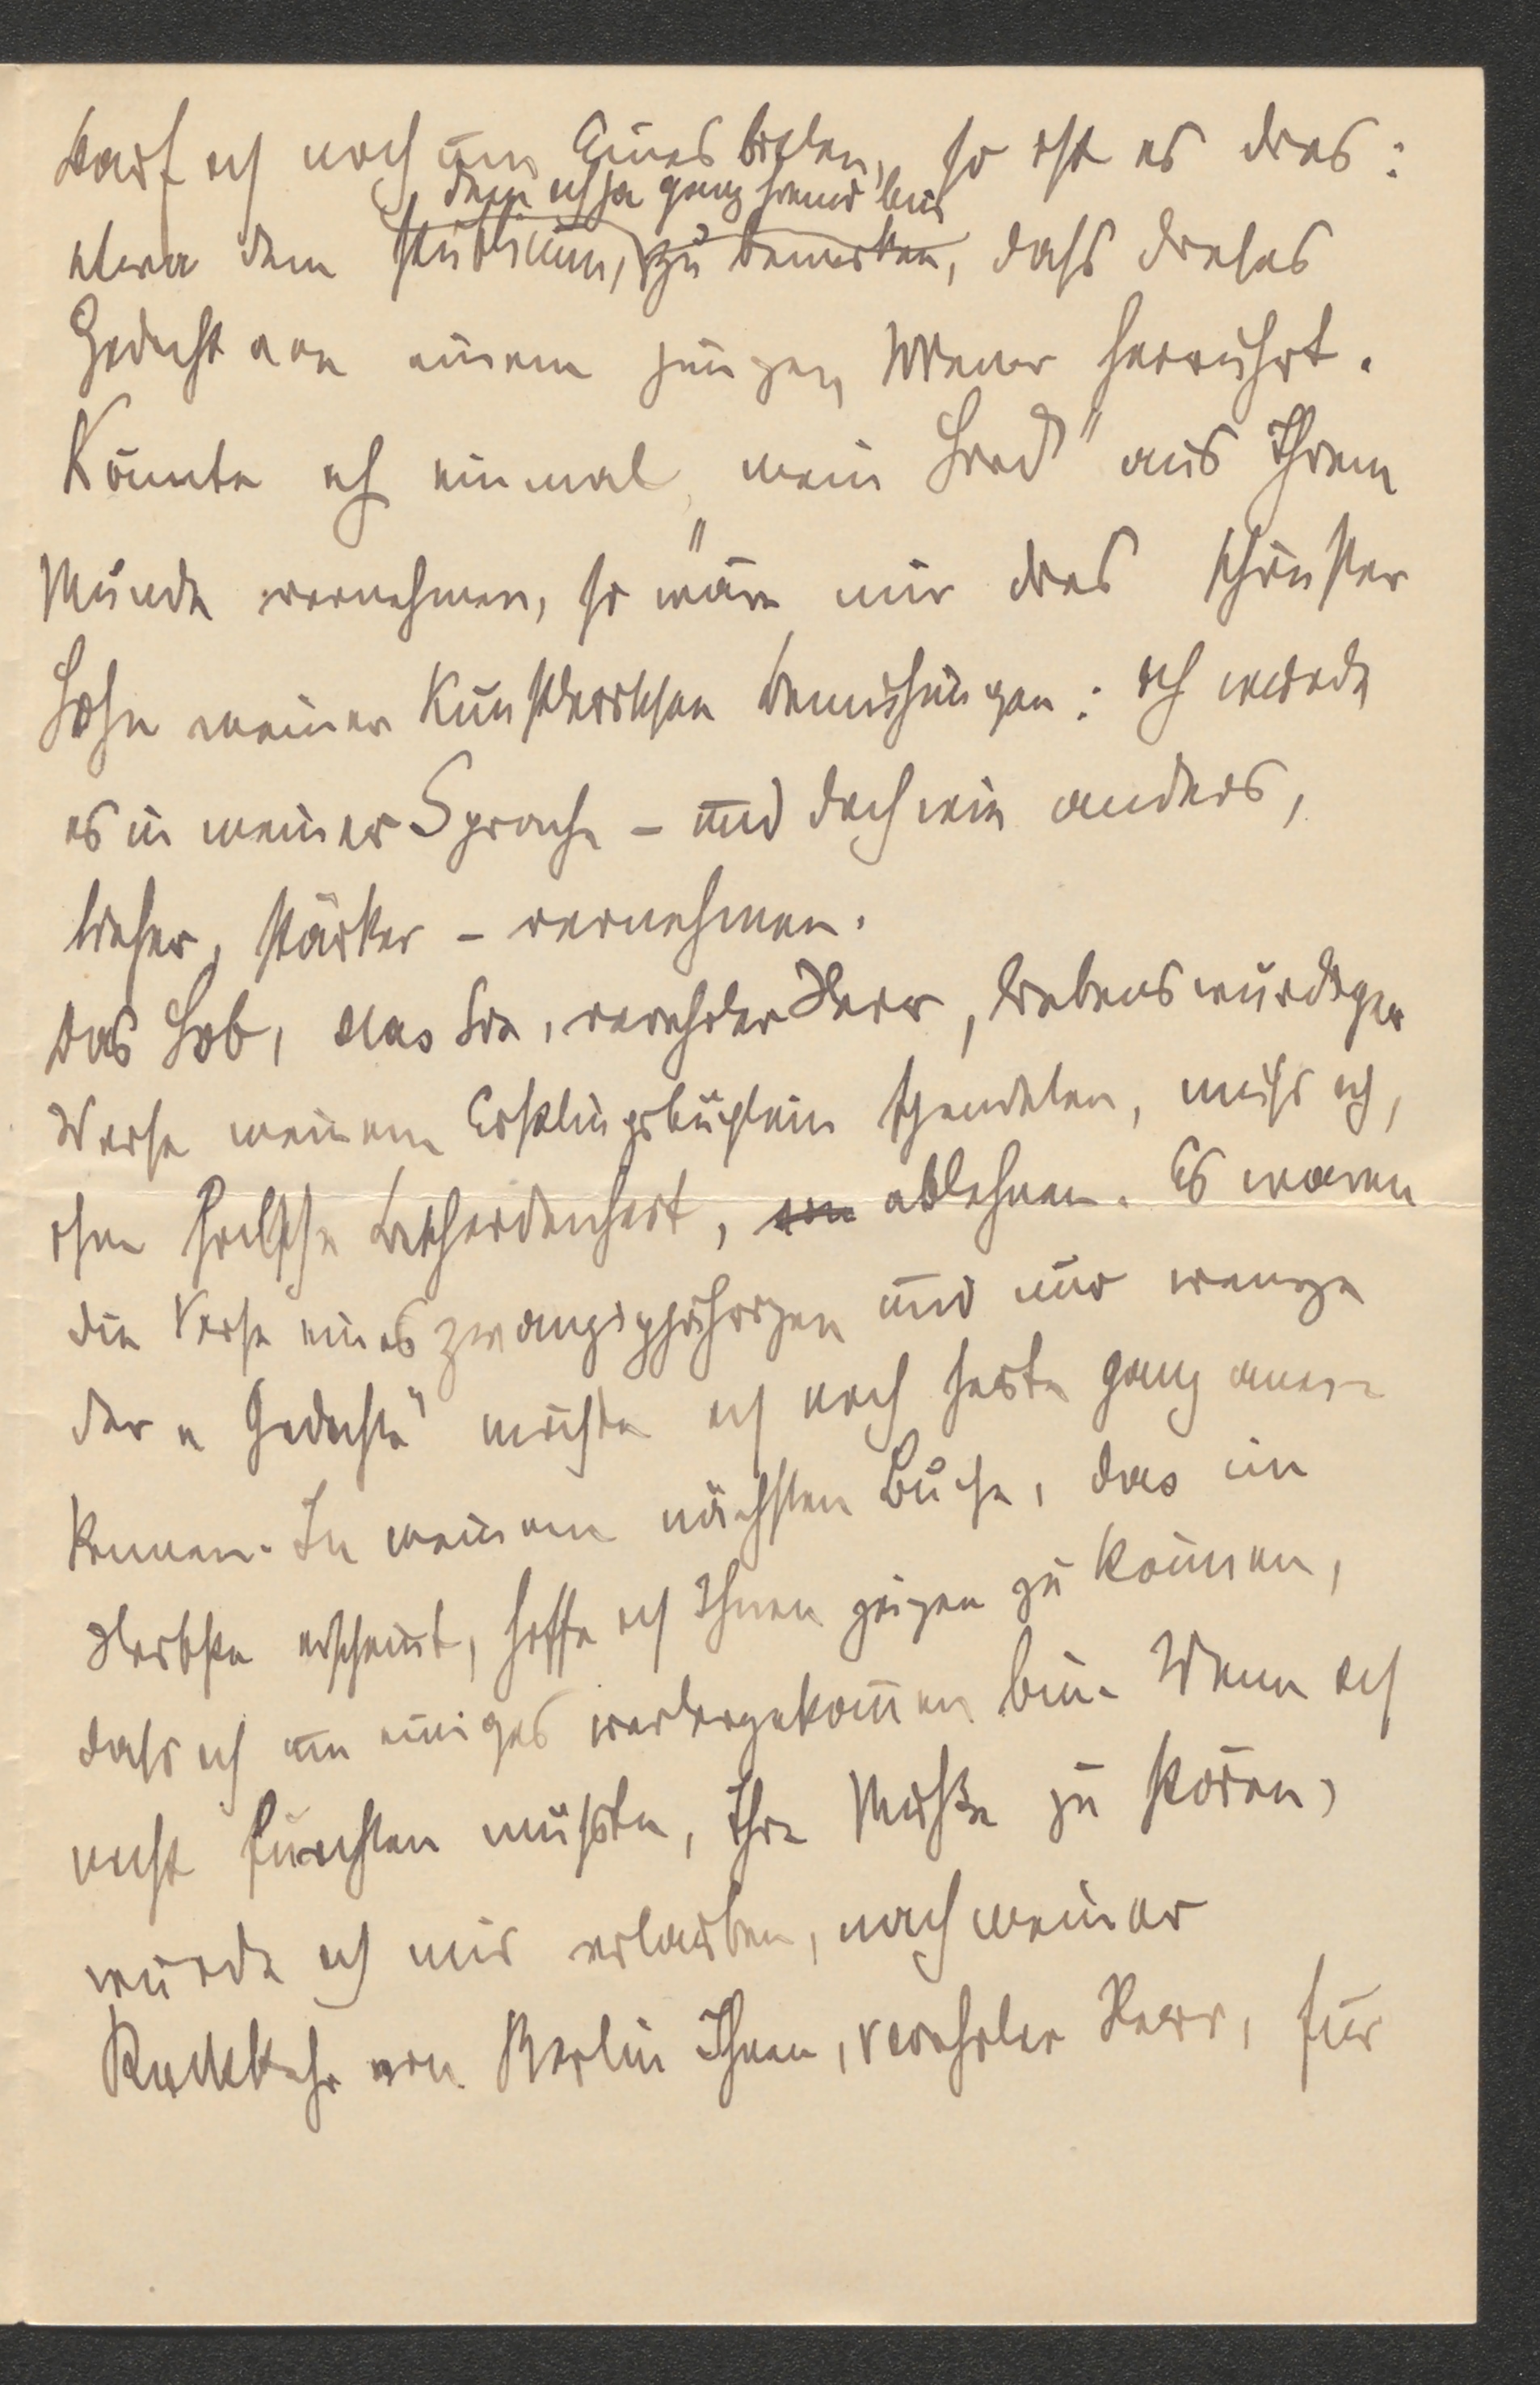 Darf ich noch um Eines bitten, so ist es dies:
dem ich ja ganz fremd bin
etwa dem Publicum, zu bemerken, dass dieses
Gedicht von einem jungen Wiener herrührt.
Könnte ich einmal „mein Lied“ aus Ihrem
Munde vernehmen, so wäre mir das schönster
Lohn meiner künstlerischen Bemühungen: ich würde
es in meiner Sprache – und doch wie anders,
tiefer, stärker – vernehmen.
Das Lob, das Sie, verehrter Herr, liebenswürdiger
Weise meinem Erstlingsbüchlein spendeten, muss ich,
ohne falsche Bescheidenheit, ablehnen. Es waren
die Verse eines Zwanzigjährigen und nur wenige
der „Gedichte“ möchte ich noch heute ganz aner-
kennen. In meinem nächsten Buche, das im
Herbste erscheint, hoffe ich Ihnen zeigen zu können,
dass ich um einiges weitergekom̄en bin. Wenn ich
nicht fürchten müsste, Ihre Muße zu stören,
würde ich mir erlauben, nach meiner
Rückkehr von Berlin Ihnen, verehrter Herr, für